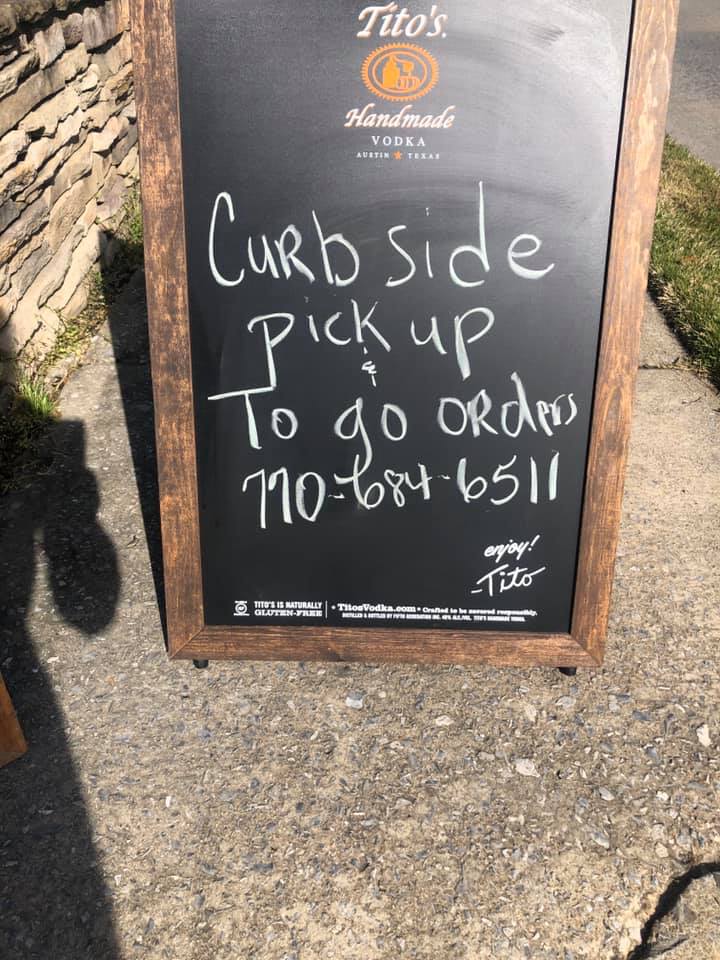 Tito's.
Handmade
VODKA
AUSTIN ★ TEXAS
Curb side
pick up
&
To go ORders
770-684-6511
enjoy!
-Tito
TITO'S IS NATURALLY
GLUTEN-FREE
• TitosVodka.com • Crafted to be savored responsibly.
DISTILLED & BOTTLED BY FIFTH GENERATION INC. 40% ALC./VOL. TITO'S HANDMADE VODKA.